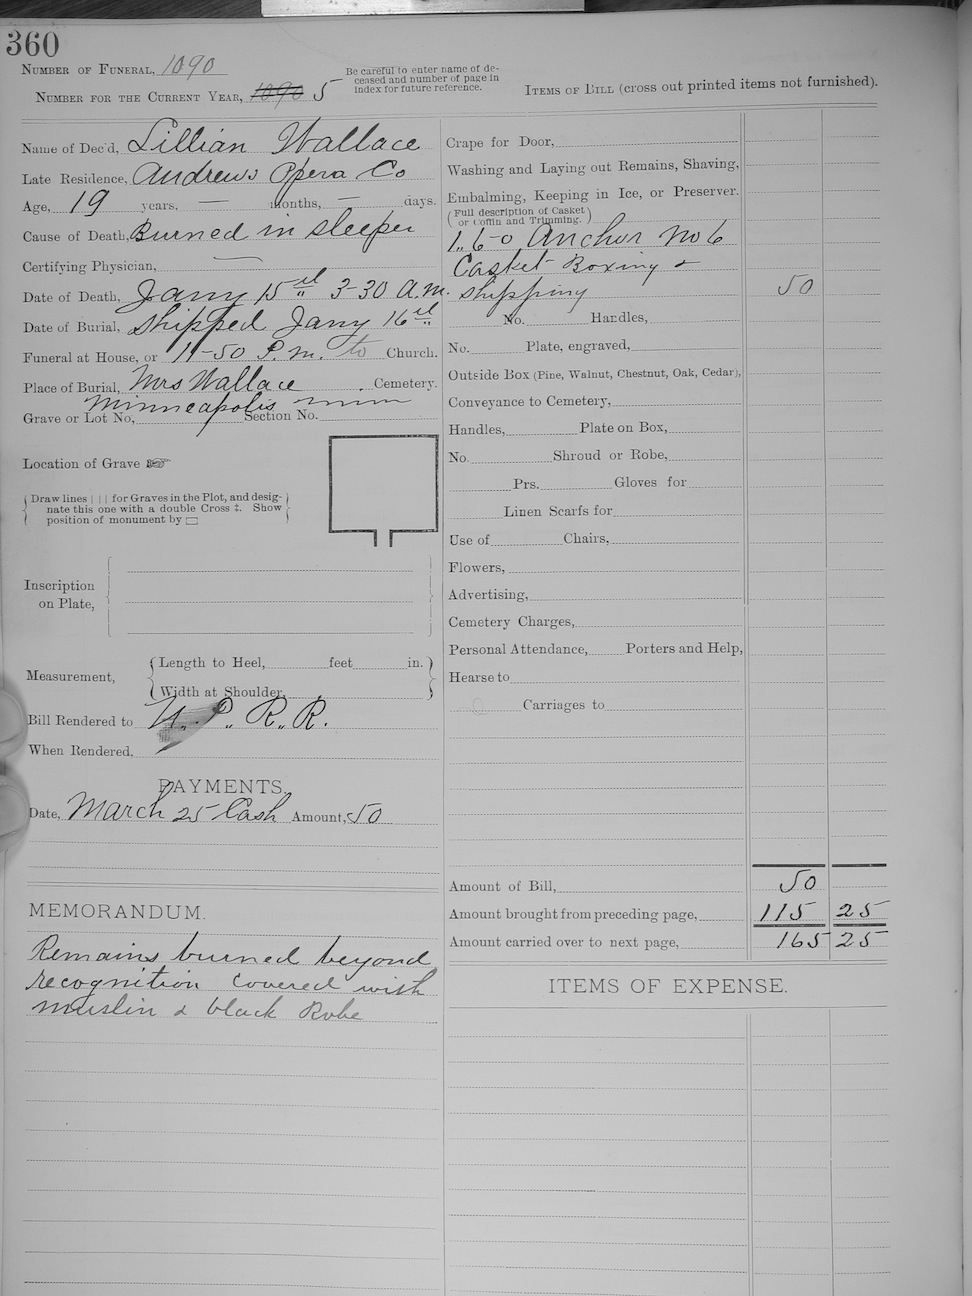 360
NUMBER OF FUNERAL, 1090
NUMBER FOR THE CURRENT YEAR, 1090 5
Be careful to enter name of de-
ceased and number of page in
index for future reference.
ITEMS OF BILL (cross out printed items not furnished).
Name of Dec'd, Lillian Wallace
Late Residence, Andrews Opera Co
Age, 19 years, — months, — days.
Cause of Death, Burned in sleeper
Certifying Physician,
Date of Death, Jany 15 3-30 A.M.
Date of Burial, Shipped Jany 16
Funeral at House, or 11-50 P.M. to Church.
Place of Burial, Mrs Wallace Cemetery.
Minneapolis
Grave or Lot No, Section No.
Location of Grave ☞
Draw lines | | | for Graves in the Plot, and desig-
nate this one with a double Cross ‡. Show
position of monument by ▭
Inscription
on Plate,
Measurement,
Length to Heel, feet in.
Width at Shoulder,
Bill Rendered to U.P.R.R.
When Rendered,
PAYMENTS.
Date, March 25 Cash Amount, 50
MEMORANDUM.
Remains burned beyond
recognition covered with
muslin & black Robe
Crape for Door,
Washing and Laying out Remains, Shaving,
Embalming, Keeping in Ice, or Preserver.
(Full description of Casket
or Coffin and Trimming.)
1, 6-0 Anchor No 6
Casket Boxing &
shipping 50
No. Handles,
No. Plate, engraved,
Outside Box (Pine, Walnut, Chestnut, Oak, Cedar),
Conveyance to Cemetery,
Handles, Plate on Box,
No. Shroud or Robe,
Prs. Gloves for
Linen Scarfs for
Use of Chairs,
Flowers,
Advertising,
Cemetery Charges,
Personal Attendance, Porters and Help,
Hearse to
Carriages to
Amount of Bill, 50
Amount brought from preceding page, 115 25
Amount carried over to next page, 165 25
ITEMS OF EXPENSE.